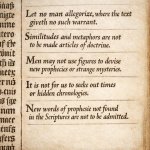 Let no man allegorize, where the text
giveth no such warrant.
Similitudes and metaphors are not
to be made articles of doctrine.
Men may not use figures to devise
new prophecies or strange mysteries.
It is not for us to seek out times
or hidden chronologies.
New words of prophesie not found
in the Scriptures are not to be admitted.